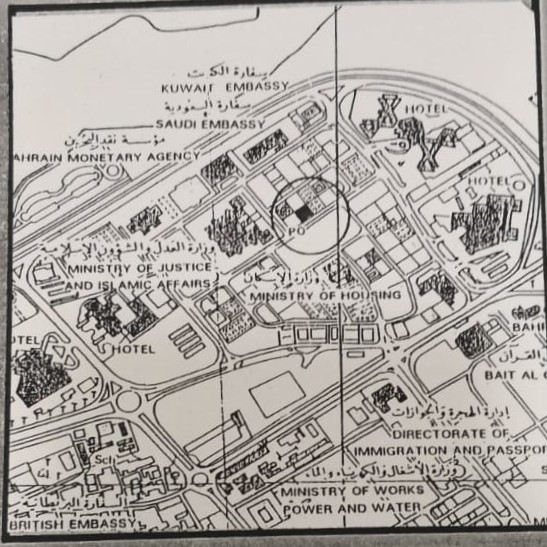 سفارة الكويت
KUWAIT EMBASSY
سفارة السعودية
SAUDI EMBASSY
HOTEL
مؤسسة نقد البحرين
AHRAIN MONETARY AGENCY
HOTEL
PO
وزارة العدل والشؤون الإسلامية
MINISTRY OF JUSTICE
AND ISLAMIC AFFAIRS
وزارة الإسكان
MINISTRY OF HOUSING
HOTEL
OTEL
BAHI
القرآن
BAIT AL
إدارة الهجرة والجوازات
DIRECTORATE OF
IMMIGRATION AND PASSPOR
Sch
وزارة الأشغال والكهرباء والماء
MINISTRY OF WORKS
POWER AND WATER
السفارة البريطانية
BRITISH EMBASSY